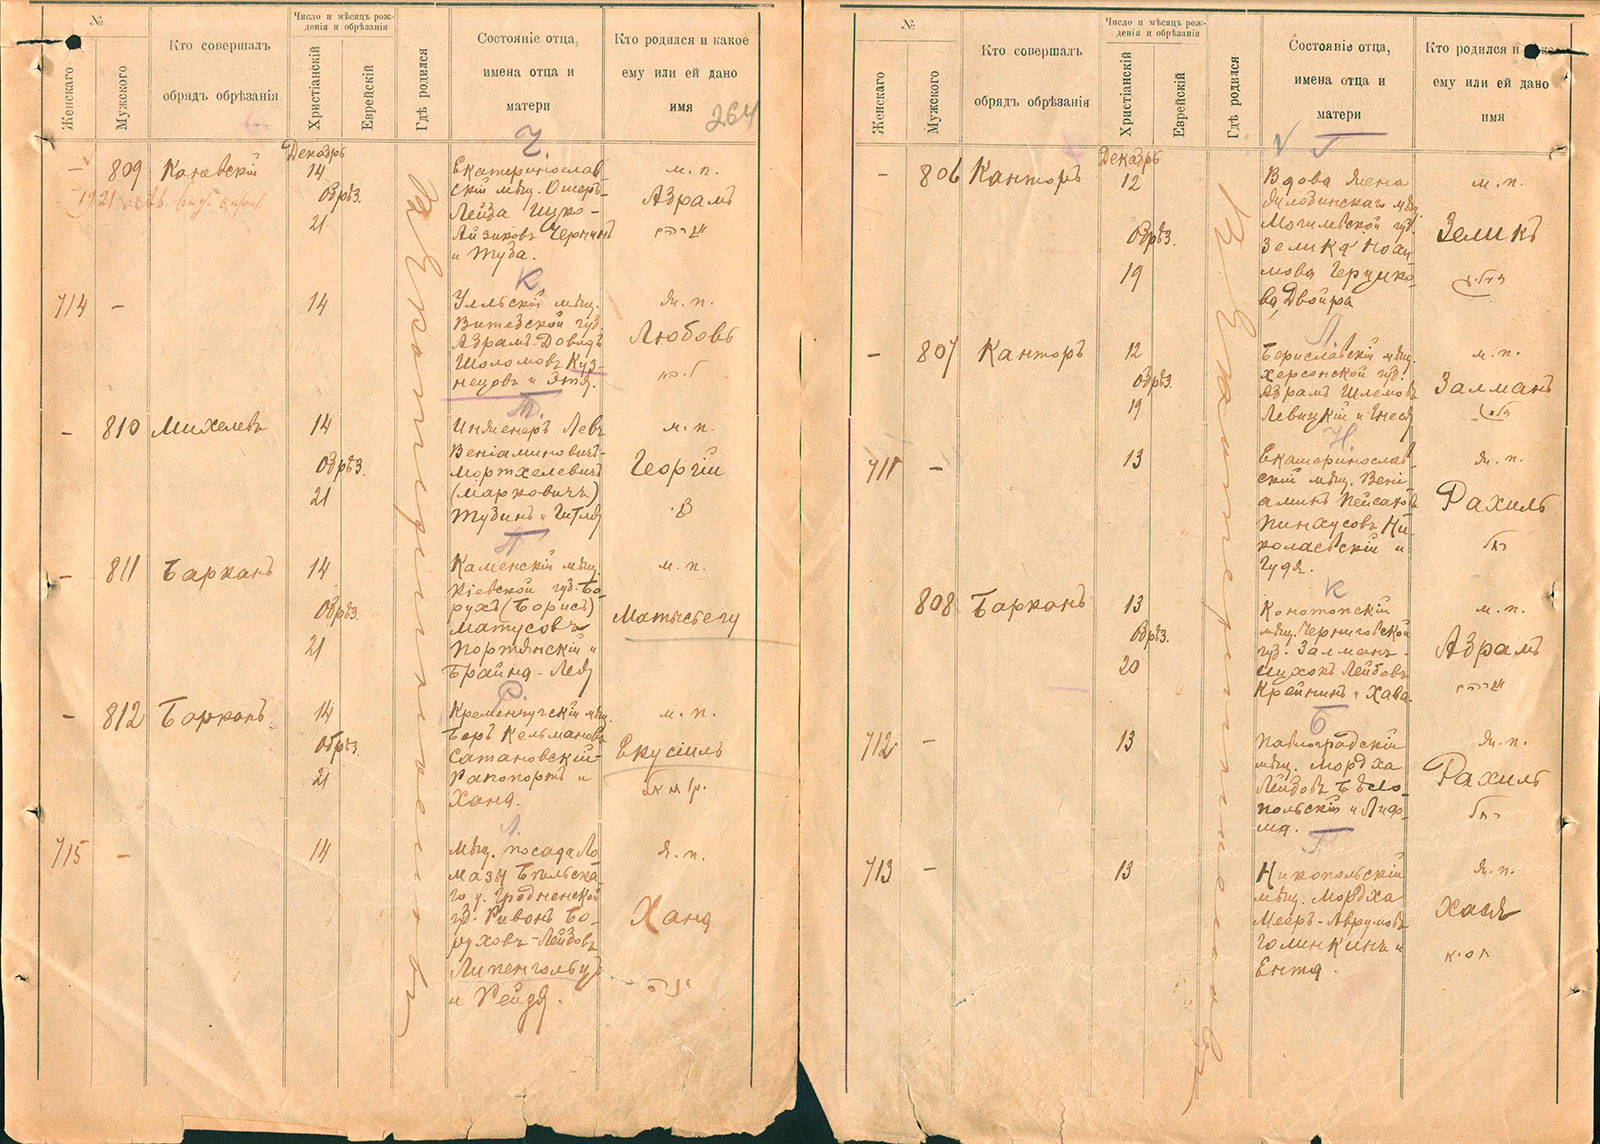 №
Женскаго
Мужского
Кто совершалъ
обрядъ обрѣзанія
Число и мѣсяцъ рож-
денія и обрѣзанія
Христіанскій
Еврейскій
Гдѣ родился
Состояніе отца,
имена отца и
матери
Кто родился и какое
ему или ей дано
имя
264
Ч.
– 809 Каневскій
Декабрь
14
Обрѣз.
21
Екатеринослав-
скій мѣщ. Ошеръ-
Лейза Ицко-
Айзиковъ Чернинъ
и Туба.
м. п.
Абрамъ
К.
714 –
14
Улльскій мѣщ.
Витебской губ.
Абрамъ-Довидъ
Шоломовъ Куз-
нецовъ и Этя.
ж. п.
Любовь
Т.
– 810 Михелевъ
14
Обрѣз.
21
Инженеръ Левъ
Веніаминовичъ-
Мортхелевичъ
(Марковичъ)
Тубинъ и Гитля
м. п.
Георгій
П
– 811 Барканъ
14
Обрѣз.
21
Каменскій мѣщ.
Кіевской губ. Бо-
рухъ (Борисъ)
Матусовъ
Портянскій и
Брайна-Лея
м. п.
Р.
– 812 Барканъ
14
Обрѣз.
21
Кременчугскій мѣщ.
Беръ Кельмановъ
Сатановскій-
Рапопортъ и
Хана.
м. п.
Екусіиль
Л.
715 –
14
Мѣщ. посада Ло
мазы Бѣльска-
го у. Гродненской
губ. Рувонъ Бо-
руховъ-Лейбовъ
и Рейзя.
ж. п.
Хана
Екатеринославъ
№
Женскаго
Мужского
Кто совершалъ
обрядъ обрѣзанія
Число и мѣсяцъ рож-
денія и обрѣзанія
Христіанскій
Еврейскій
Гдѣ родился
Состояніе отца,
имена отца и
матери
Кто родился и
ему или ей дано
имя
Г
– 806 Канторъ
Декабрь
12
Обрѣз.
19
Вдова жена
Жлобинскаго мѣщ.
Могилевской губ.
Зелика Ноаи-
мова Герцико-
ва Двойра
м. п.
Зеликъ
Л.
– 807 Канторъ
12
Обрѣз.
19
Бериславскій мѣщ.
Херсонской губ.
Абрамъ Шлемовъ
Левицкій и Енеся
м. п.
Залманъ
Н.
711 –
13
Екатеринослав-
скій мѣщ. Вені-
аминъ Пейсаховъ
Пинхусовъ Ни-
колаевскій и
Гудя.
ж. п.
Рахиль
К
808 Барканъ
13
Обрѣз.
20
Конотопскій
мѣщ. Черниговской
губ. Залманъ-
Ицхокъ Лейбовъ
Крейнинъ и Хава.
м. п.
Абрамъ
Б
712 –
13
Павлоградскій
мѣщ. Мордха
Лейбовъ Бѣло-
польскій и Лифш-
ма.
ж. п.
Рахиль
Г
713 –
13
Никопольскій
мѣщ. Мордха
Мееръ-Аврумовъ
Голинкинъ и
Ента.
ж. п.
Хася
Екатеринославъ